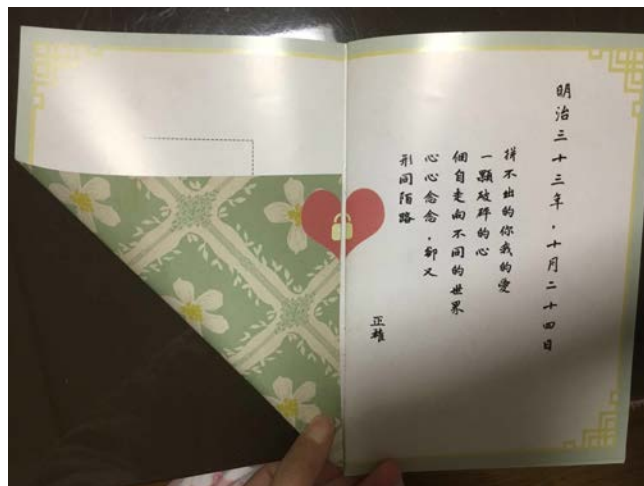 明治三十三年，十月二十四日
拼不出的你我的愛
一顆破碎的心
個自走向不同的世界
心心念念，卻又
形同陌路
正雄